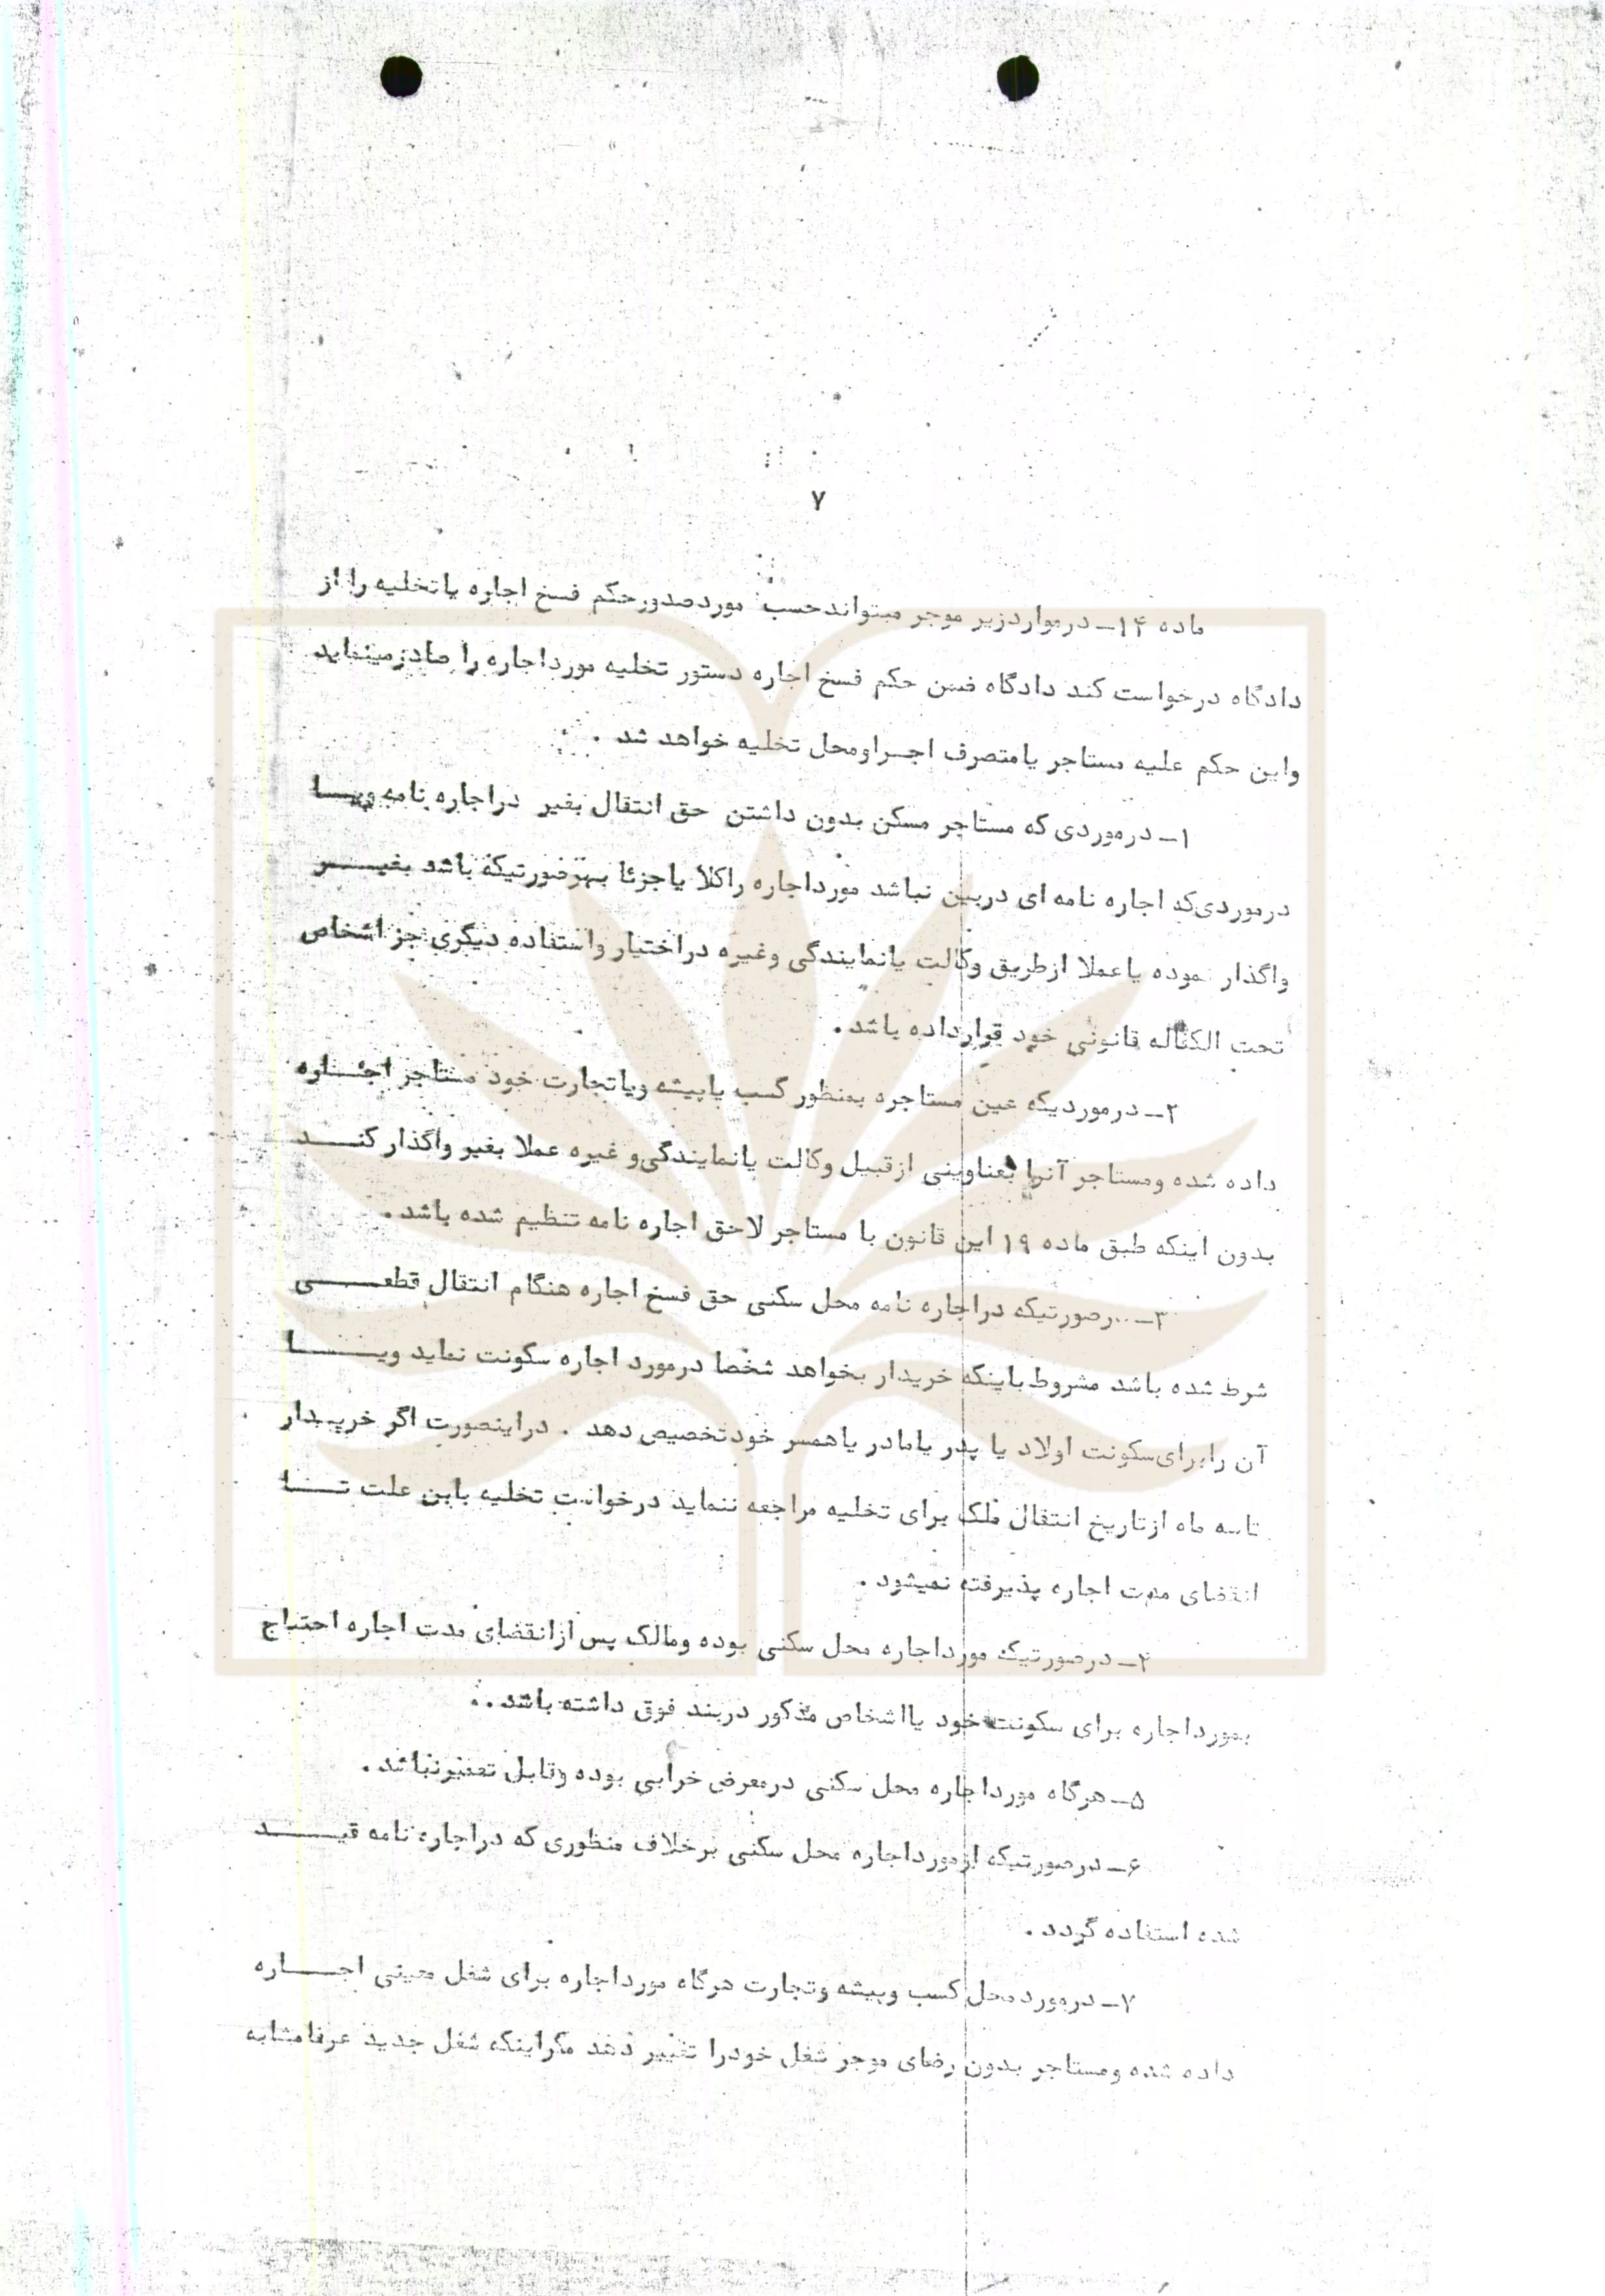 ۷
ماده ۱۴ـ درمواردزیر موجر میتواندحسب موردصدورحکم فسخ اجاره یاتخلیه را از
دادگاه درخواست کند دادگاه ضمن حکم فسخ اجاره دستور تخلیه مورداجاره را صادرمینماید
واین حکم علیه مستاجر یامتصرف اجراومحل تخلیه خواهد شد .
۱ـ درموردی که مستاجر مسکن بدون داشتن حق انتقال بغیر دراجاره نامه ویا
درموردی‌که اجاره نامه ای دربین نباشد مورداجاره راکلا یاجزئا بهرصورتیکه باشد بغیر
واگذار نموده یاعملا ازطریق وکالت یانمایندگی وغیره دراختیار واستفاده دیگری جز اشخاص
تحت الکفاله قانونی خود قرارداده باشد .
۲ـ درموردیکه عین مستاجره بمنظور کسب یاپیشه ویاتجارت خود مستاجر اجاره
داده شده ومستاجر آنرا بعناوینی ازقبیل وکالت یانمایندگی‌و غیره عملا بغیر واگذار کند
بدون اینکه طبق ماده ۱۹ این قانون با مستاجر لاحق اجاره نامه تنظیم شده باشد .
۳ـ درصورتیکه دراجاره نامه محل سکنی حق فسخ اجاره هنگام انتقال قطعی
شرط شده باشد مشروط باینکه خریدار بخواهد شخصا درمورد اجاره سکونت نماید ویا
آن رابرای‌سکونت اولاد یا پدر یامادر یاهمسر خودتخصیص دهد . دراینصورت اگر خریدار
تاسه ماه ازتاریخ انتقال ملک برای تخلیه مراجعه ننماید درخواست تخلیه باین علت تا
انقضای مدت اجاره پذیرفته نمیشود .
۴ـ درصورتیکه مورداجاره محل سکنی بوده ومالک پس ازانقضای مدت اجاره احتیاج
بمورداجاره برای سکونت خود یااشخاص مذکور دربند فوق داشته باشد .
۵ـ هرگاه مورداجاره محل سکنی درمعرض خرابی بوده وقابل تعمیرنباشد .
۶ـ درصورتیکه ازمورداجاره محل سکنی برخلاف منظوری که دراجاره نامه قید
شده استفاده گردد .
۷ـ درموردمحل کسب وپیشه وتجارت هرگاه مورداجاره برای شغل معینی اجاره
داده شده ومستاجر بدون رضای موجر شغل خودرا تغییر دهد مگراینکه شغل جدید عرفامشابه